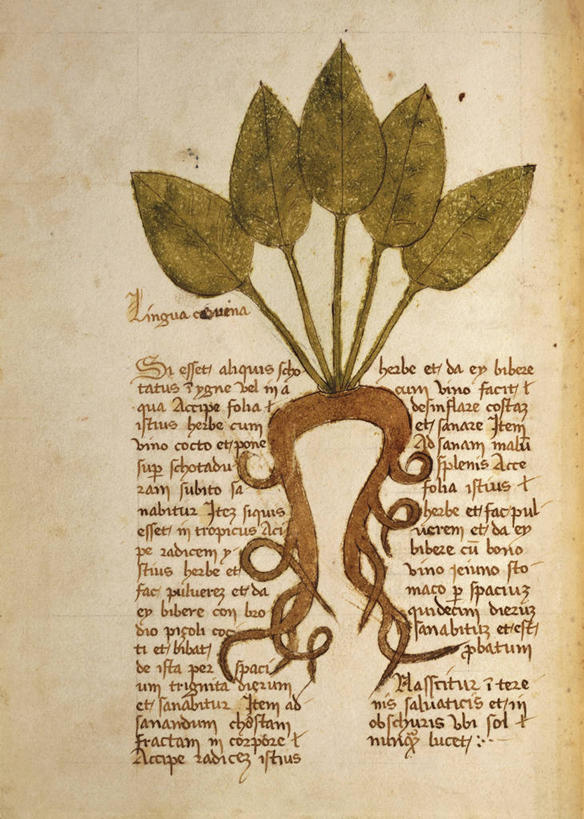 Lingua cervina
Si esset aliquis scho
tatus ĩ ygne vel in a
qua Accipe folia
istius herbe cum
vino cocto et pone
sup schotadu
ram subito sa
nabitur Itez siquis
esset in tropicus Aci
pe radicem y
stius herbe et
fac pulverez et da
ey bibere con bro
dio pizoli coc
ti et bibat
de ista per spaci
um trignita dierum
et sanabitur Item ad
sanandum chostam
fractam in corpore
Accipe radicez istius
herbe et da ey bibere
cum vino facit
desinflare costaz
et sanare Item
Ad sanam malũ
splenis Acce
folia istius
herbe et fac pul
verem et da ey
bibere cũ bono
vino jeiuno sto
maco p spaciuz
quidecim dieruz
sanabitur et est
pbatum
Nasscitur ĩ tere
nis salvaticis et in
obschuris vbi sol
nunqz lucet